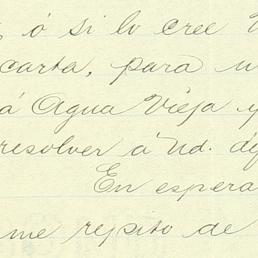 ó si lo cree
carta, para
á Agua Vieja y
resolver á Ud.
En espera
me repito de